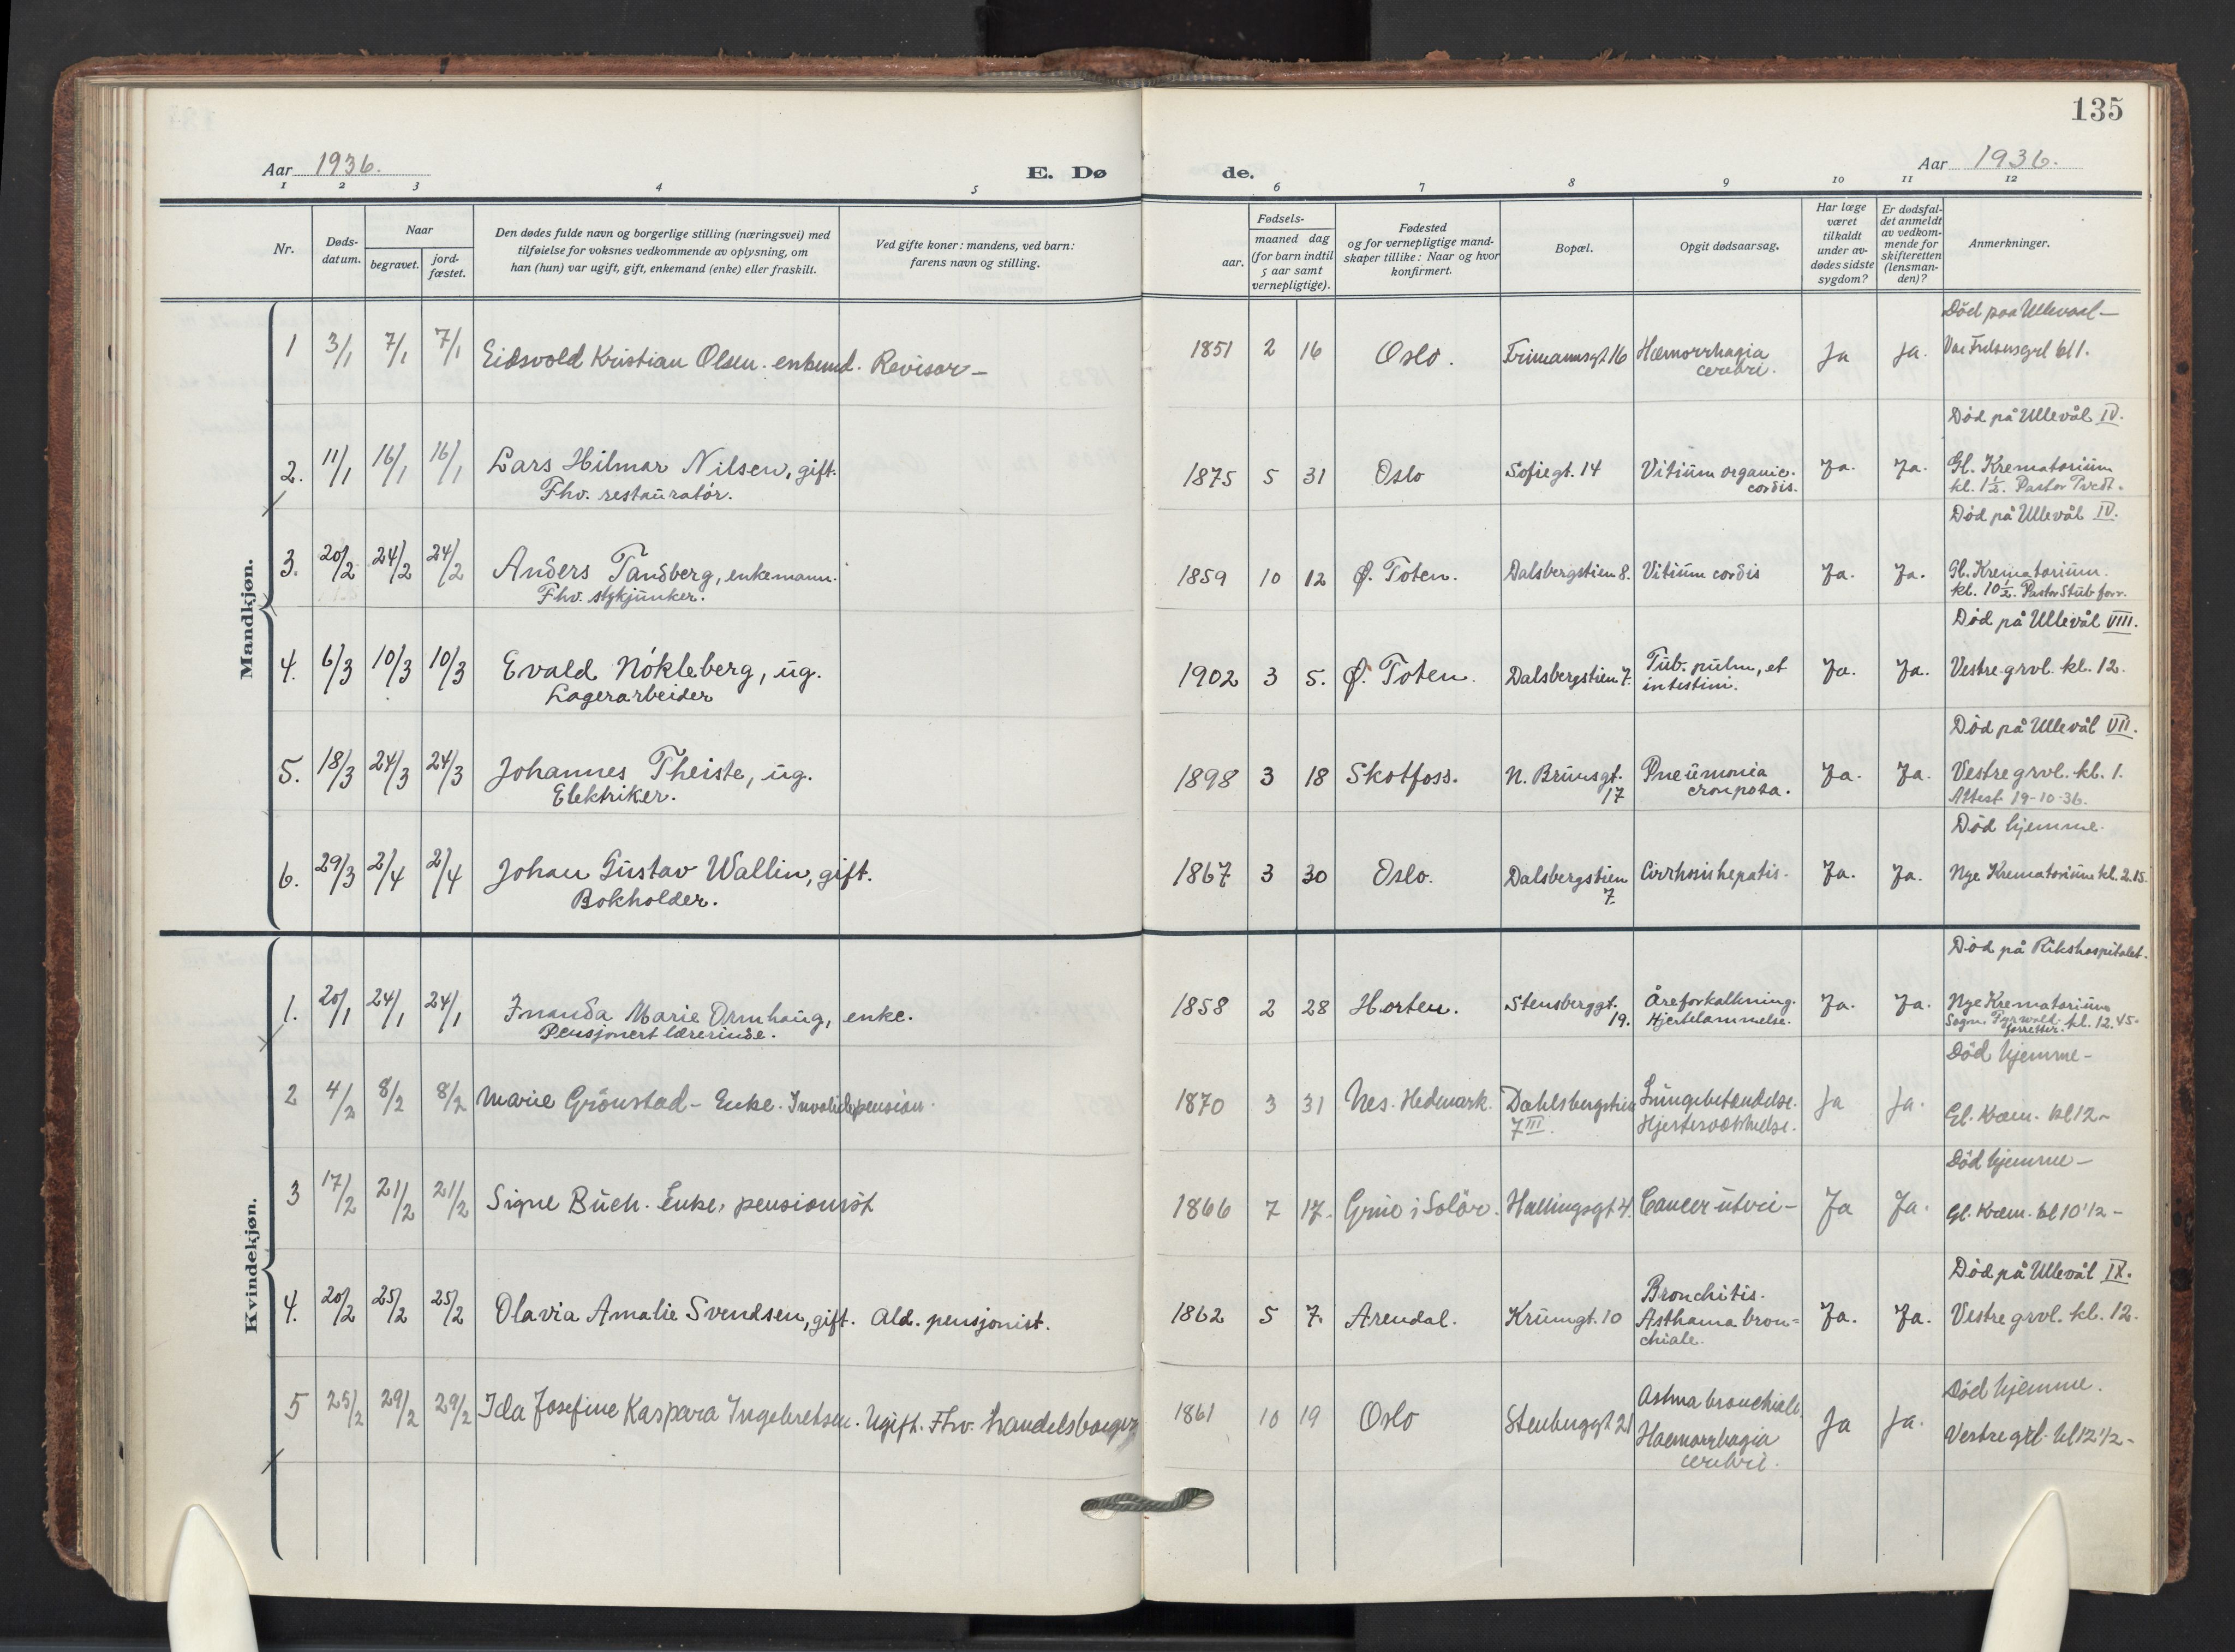 135
Aar 1936.
E. Dø de.
Aar 1936.
1 2 3 4 5 6 7 8 9 10 11 12
Nr.
Døds-
datum.
Naar
begravet.
jord-
fæstet.
Den dødes fulde navn og borgerlige stilling (næringsvei) med
tilføielse for voksnes vedkommende av oplysning, om
han (hun) var ugift, gift, enkemand (enke) eller fraskilt.
Ved gifte koner: mandens, ved barn:
farens navn og stilling.
Fødsels-
aar.
maaned dag
(for barn indtil
5 aar samt
vernepligtige).
Fødested
og for vernepligtige mand-
skaper tillike: Naar og hvor
konfirmert.
Bopæl.
Opgit dødsaarsag.
Har læge
været
tilkaldt
under av-
dødes sidste
sygdom?
Er dødsfal-
det anmeldt
av vedkom-
mende for
skifteretten
(lensman-
den)?
Anmerkninger.
Mandkjøn.
Død paa Ullevaal –
1 3/1 7/1 7/1 Eidsvold Kristian Olsen. enkemd. Revisor – 1851 2 16 Oslo. Frimannsgt. 16 Hæmorrhagia Ja Ja. kl 1.
cerebri.
Død på Ullevål IV.
2. 11/1 16/1 16/1 Lars Hilmar Nilsen, gift. 1875 5 31 Oslo Sofiegt. 14 Vitium organic. Ja. Ja. Gl. Krematorium
Fhv. restauratør. cordis. kl. 1½. Pastor Tvedt.
Død på Ullevål IV.
3. 20/2 24/2 24/2 Anders Tandberg, enkemann. 1859 10 12 Ø. Toten. Dalsbergstien 8. Vitium cordis Ja. Ja. Gl. Krematorium.
Fhv. stykjunker. kl. 10½. Pastor Stub forr.
Død på Ullevål VIII.
4. 6/3 10/3 10/3 Evald Nøkleberg, ug. 1902 3 5. Ø. Toten. Dalsbergstien 7. Tub. pulm, et Ja. Ja. Vestre grvl. kl. 12.
Lagerarbeider intestini.
Død på Ullevål VII.
5. 18/3 24/3 24/3 Johannes Theiste, ug. 1898 3 18 Skotfoss. N. Brunsgt. Pneumonia Ja. Ja. Vestre grvl. kl. 1.
Elektriker. 17 crouposa. Attest 19-10-36.
Død hjemme.
6. 29/3 2/4 2/4 Johan Gustav Wallin, gift. 1867 3 30 Oslo. Dalsbergstien Cirrhosis hepatis. Ja. Ja. Nye Krematorium kl. 2.15.
Bokholder. 7.
Kvindekjøn.
Død på Rikshospitalet.
1. 20/1 24/1 24/1 Inanda Marie Ormhaug, enke. 1858 2 28 Horten. Stensberggt. Åreforkalkning. Ja. Ja. Nye Krematorium
Pensjonert lærerinde. 19. Hjertelammelse. Sogn. forretter. kl. 12.45.
Død hjemme –
2 4/2 8/2 8/2 Marie Grönstad – Enke. Invalidepension. 1870 3 31 Nes. Hedmark. Dahlsbergstien Lungebetendelse. Ja Ja. Gl. Krem. kl 12 –
7 III. Hjertesvækkelse.
Død hjemme –
3 17/2 21/2 21/2 Signe Buch. Enke, pensionist 1866 7 17. Grue i Solör. Hallingsgt 4. Cancer uteri – Ja Ja. Gl. Krem. kl 10 1/2 –
Død på Ullevål IX.
4. 20/2 25/2 25/2 Olavia Amalie Svendsen, gift. Ald. pensjonist. 1862 5 7. Arendal. Krumgt. 10 Bronchitis. Ja. Ja. Vestre grvl. kl. 12.
Asthama bron=
chiale.
Død hjemme.
5 25/2 29/2 29/2 Ida Josefine Kaspara Ingebretsen. Ugift. Fhv. handelsborger 1861 10 19 Oslo Stenberggt 21 Astma bronchiale. Ja Ja. Vestre grl. kl 12 1/2 –
Haemorrhagia
cerebri.